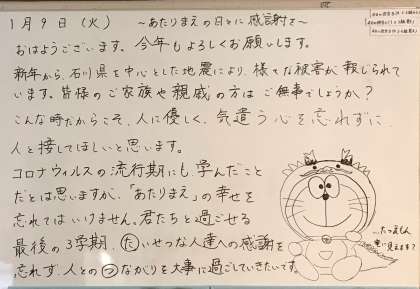 1月9日(火) ～あたりまえの日々に感謝を～
おはようございます。今年もよろしくお願いします。
新年から、石川県を中心とした地震により、様々な被害が報じられて
います。皆様のご家族や親戚の方はご無事でしょうか？
こんな時だからこそ、人に優しく、気遣う心を忘れずに
人と接してほしいと思います。
コロナウィルスの流行期にも学んだこと
だとは思いますが、「あたりまえ」の幸せを
忘れてはいけません。君たちと過ごせる
最後の3学期、たいせつな人達への感謝を
忘れず、人とのつながりを大事に過ごしていきたいです。
…たつえもん
竜に見えます？